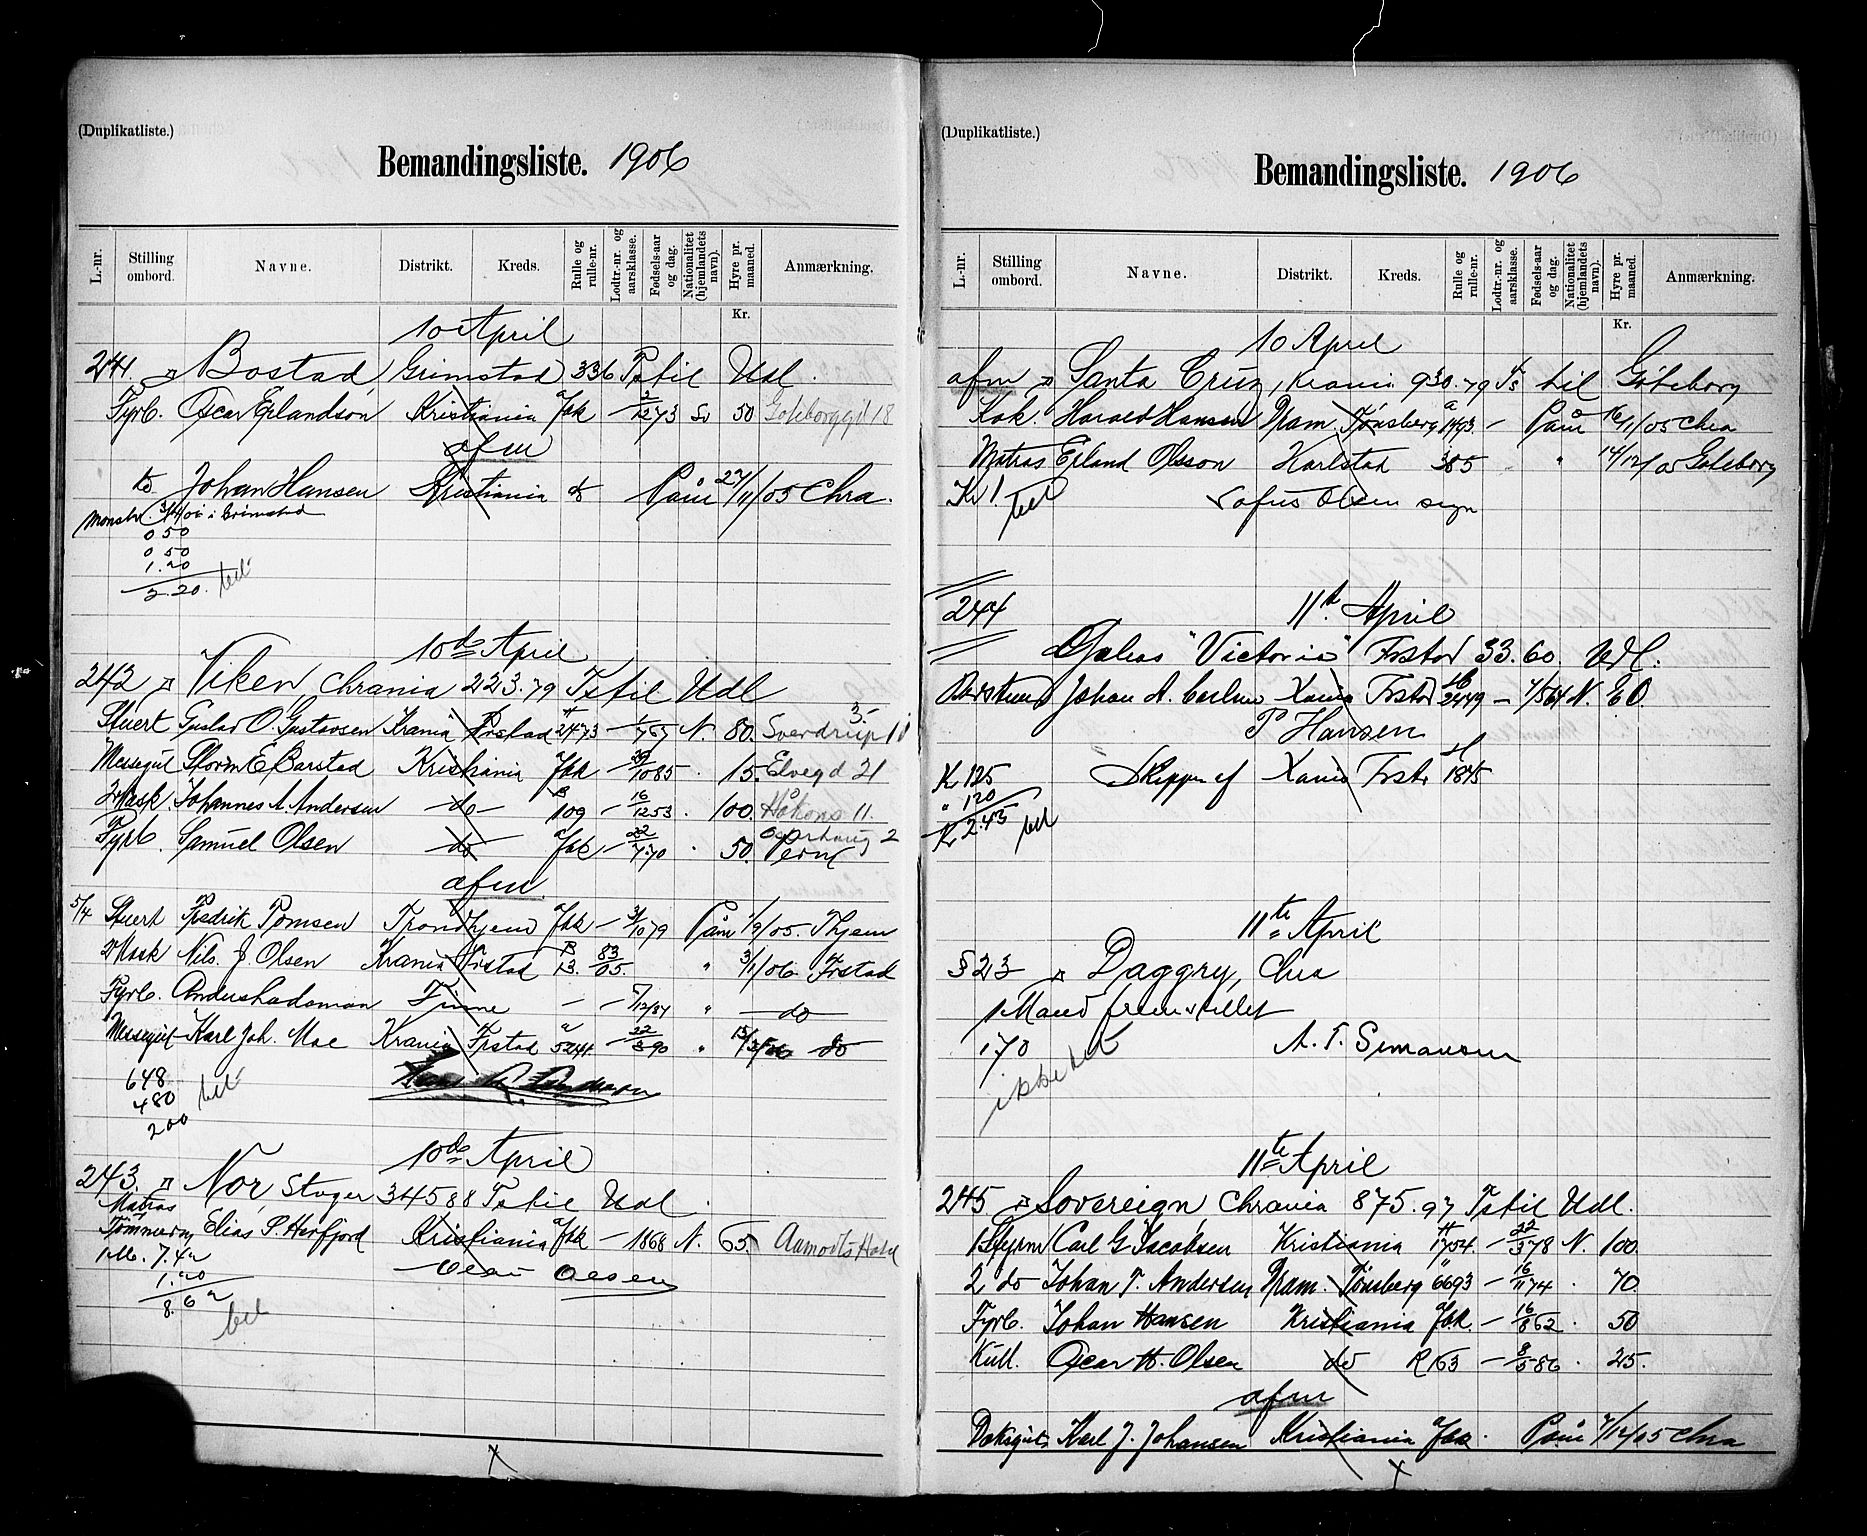 (Duplikatliste.)
Bemandingsliste. 1906
L.-nr. Stilling ombord. Navne. Distrikt. Kreds. Rulle og rulle-nr. Lodtr.-nr. og aarsklasse. Fødsels-aar og dag. Nationalitet (hjemlandets navn). Hyre pr. maaned. Anmærkning.
Kr.
10 April
241. Bostad, Grimstad 336 Ts til Udl.
Fyrb. Oscar Erlandson Kristiania Jbk 50
afm
do Johan Hansen Kristiania do Paam 27/11/05 Chra.
Mønstr. i Grimstad
0 50
0 50
1.20
2.20. bet
10de April
242 Viken, Chrania 223.79 Ts til Udl
Stuert Gustav O. Gustavsen Krania Frstad 2473 N. 80. Sverdrup
Messegut E. Barstad Kristiania Jbk 15. Elvegd 21
2 Mask. Johannes A. Andersen do 109 16/12 53 100. Håkons 11.
Fyrb. Samuel Olsen do Jbk 22/7 70 50.
afm
5/4 Stuert Fredrik Tomsen Trondhjem Jbk 79 Paam 1/9/05. Thjem
2 Mask Nils J. Olsen Krania Frstad 13. 83/05. " 3/1/06 Frstad
Fyrb. Finne — " do
Messegut Karl Joh. Moe Krania Frstad 5241. 22/8 90 " do
648
480 bet
200
10de April
243. Nor, Stvger 345 88 Ts til Udl.
Matros
Tømmerm Elias S. Herfjord Kristiania Jbk 1868 N. 65. Aamodts Hotel
7.42 Olsen
1.20
8.62
bet
(Duplikatliste.)
Bemandingsliste. 1906
L.-nr. Stilling ombord. Navne. Distrikt. Kreds. Rulle og rulle-nr. Lodtr.-nr. og aarsklasse. Fødsels-aar og dag. Nationalitet (hjemlandets navn). Hyre pr. maaned. Anmærkning.
Kr.
10 April
afm Santa Cruz, Krania 930.79 Ts til Göteborg
Kok. Harald Hansen Dram. Tønsberg 1493. — Paam 16/11/05 Chra
Matros Erland Olsson Karlstad 385 " 14/12/05 Göteborg
Kr 1. bet Olsen
244 11te April
Galeas "Victoria" Frstad 33.60. Udl.
Johan A. Carlsen Xania Frstd 2449 — N. 60.
P Hansen
K 125 Skipper Xania Frst 1845
" 120
K 2.45 bet
11te April
§ 23 Daggry, Chra
1 Mand fremstillet
170 A. T. Simonsen
ikke bet
11te April
245 Sovereign Chrania 875.97 Ts til Udl.
1 Styrm Carl G Jacobsen Kristiania 1754. — 22/3 78 N. 100.
2 do Johan T. Andersen Dram. Tønsberg 6693 — 16/11 74 70.
Fyrb. Johan Hansen Kristiania Jbk. — 16/8 62 50
Kull. Oscar H. Olsen do R 63 — 8/5 86 25.
afm
Dæksgut Karl J. Johansen Kristiania Jbk. Paam 7/12/05 Chra